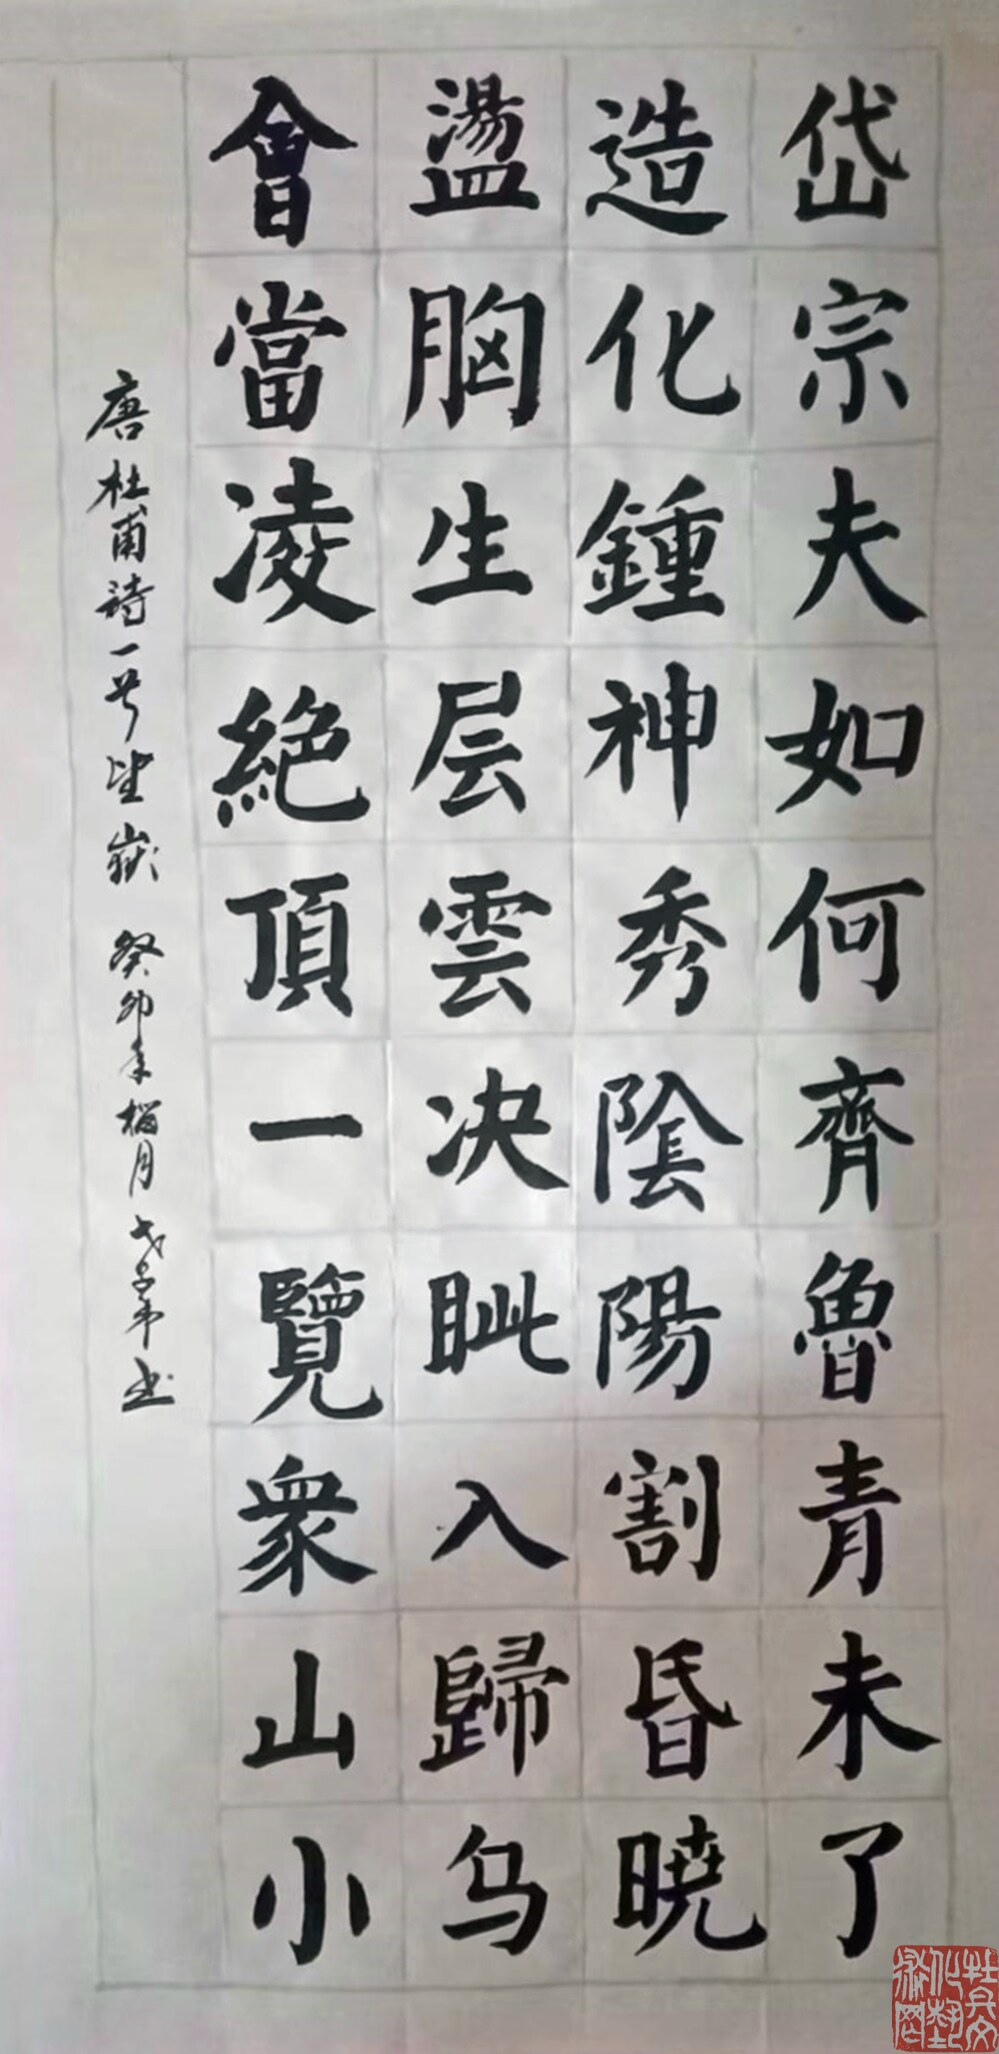 岱宗夫如何齊魯青未了
造化鍾神秀陰陽割昏曉
盪胸生层雲决眦入歸乌
會當凌絕頂一覽衆山小
唐杜甫詩一首望嶽 癸卯年榴月
书